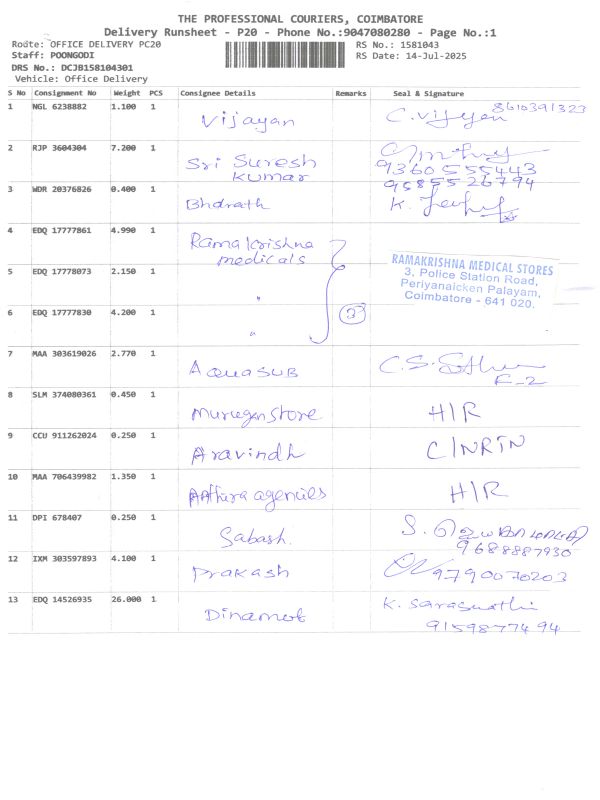 THE PROFESSIONAL COURIERS, COIMBATORE
Delivery Runsheet - P20 - Phone No.:9047080280 - Page No.:1
Route: OFFICE DELIVERY PC20 RS No.: 1581043
Staff: POONGODI RS Date: 14-Jul-2025
DRS No.: DCJB158104301
Vehicle: Office Delivery
S No Consignment No Weight PCS Consignee Details Remarks Seal & Signature
1 NGL 6238882 1.100 1 Vijayan C. Vijayan 8610391323
2 RJP 3604304 7.200 1 Sri Suresh
Kumar 9360555443
9585526794
3 WDR 20376826 0.400 1 Bharath K.
4 EDQ 17777861 4.990 1 Ramakrishna
medicals
RAMAKRISHNA MEDICAL STORES
3, Police Station Road,
Periyanaicken Palayam,
Coimbatore - 641 020.
5 EDQ 17778073 2.150 1 "
6 EDQ 17777830 4.200 1 " 3
7 MAA 303619026 2.770 1 Aquasub C.S.
F-2
8 SLM 374080361 0.450 1 Murugan Store H/R
9 CCU 911262024 0.250 1 Aravindh C/NRTN
10 MAA 706439982 1.350 1 agencies H/R
11 DPI 678407 0.250 1 Sabash. S.
9688887930
12 IXM 303597893 4.100 1 Prakash 9790070203
13 EDQ 14526935 26.000 1 K. Saraswathi
9159877494